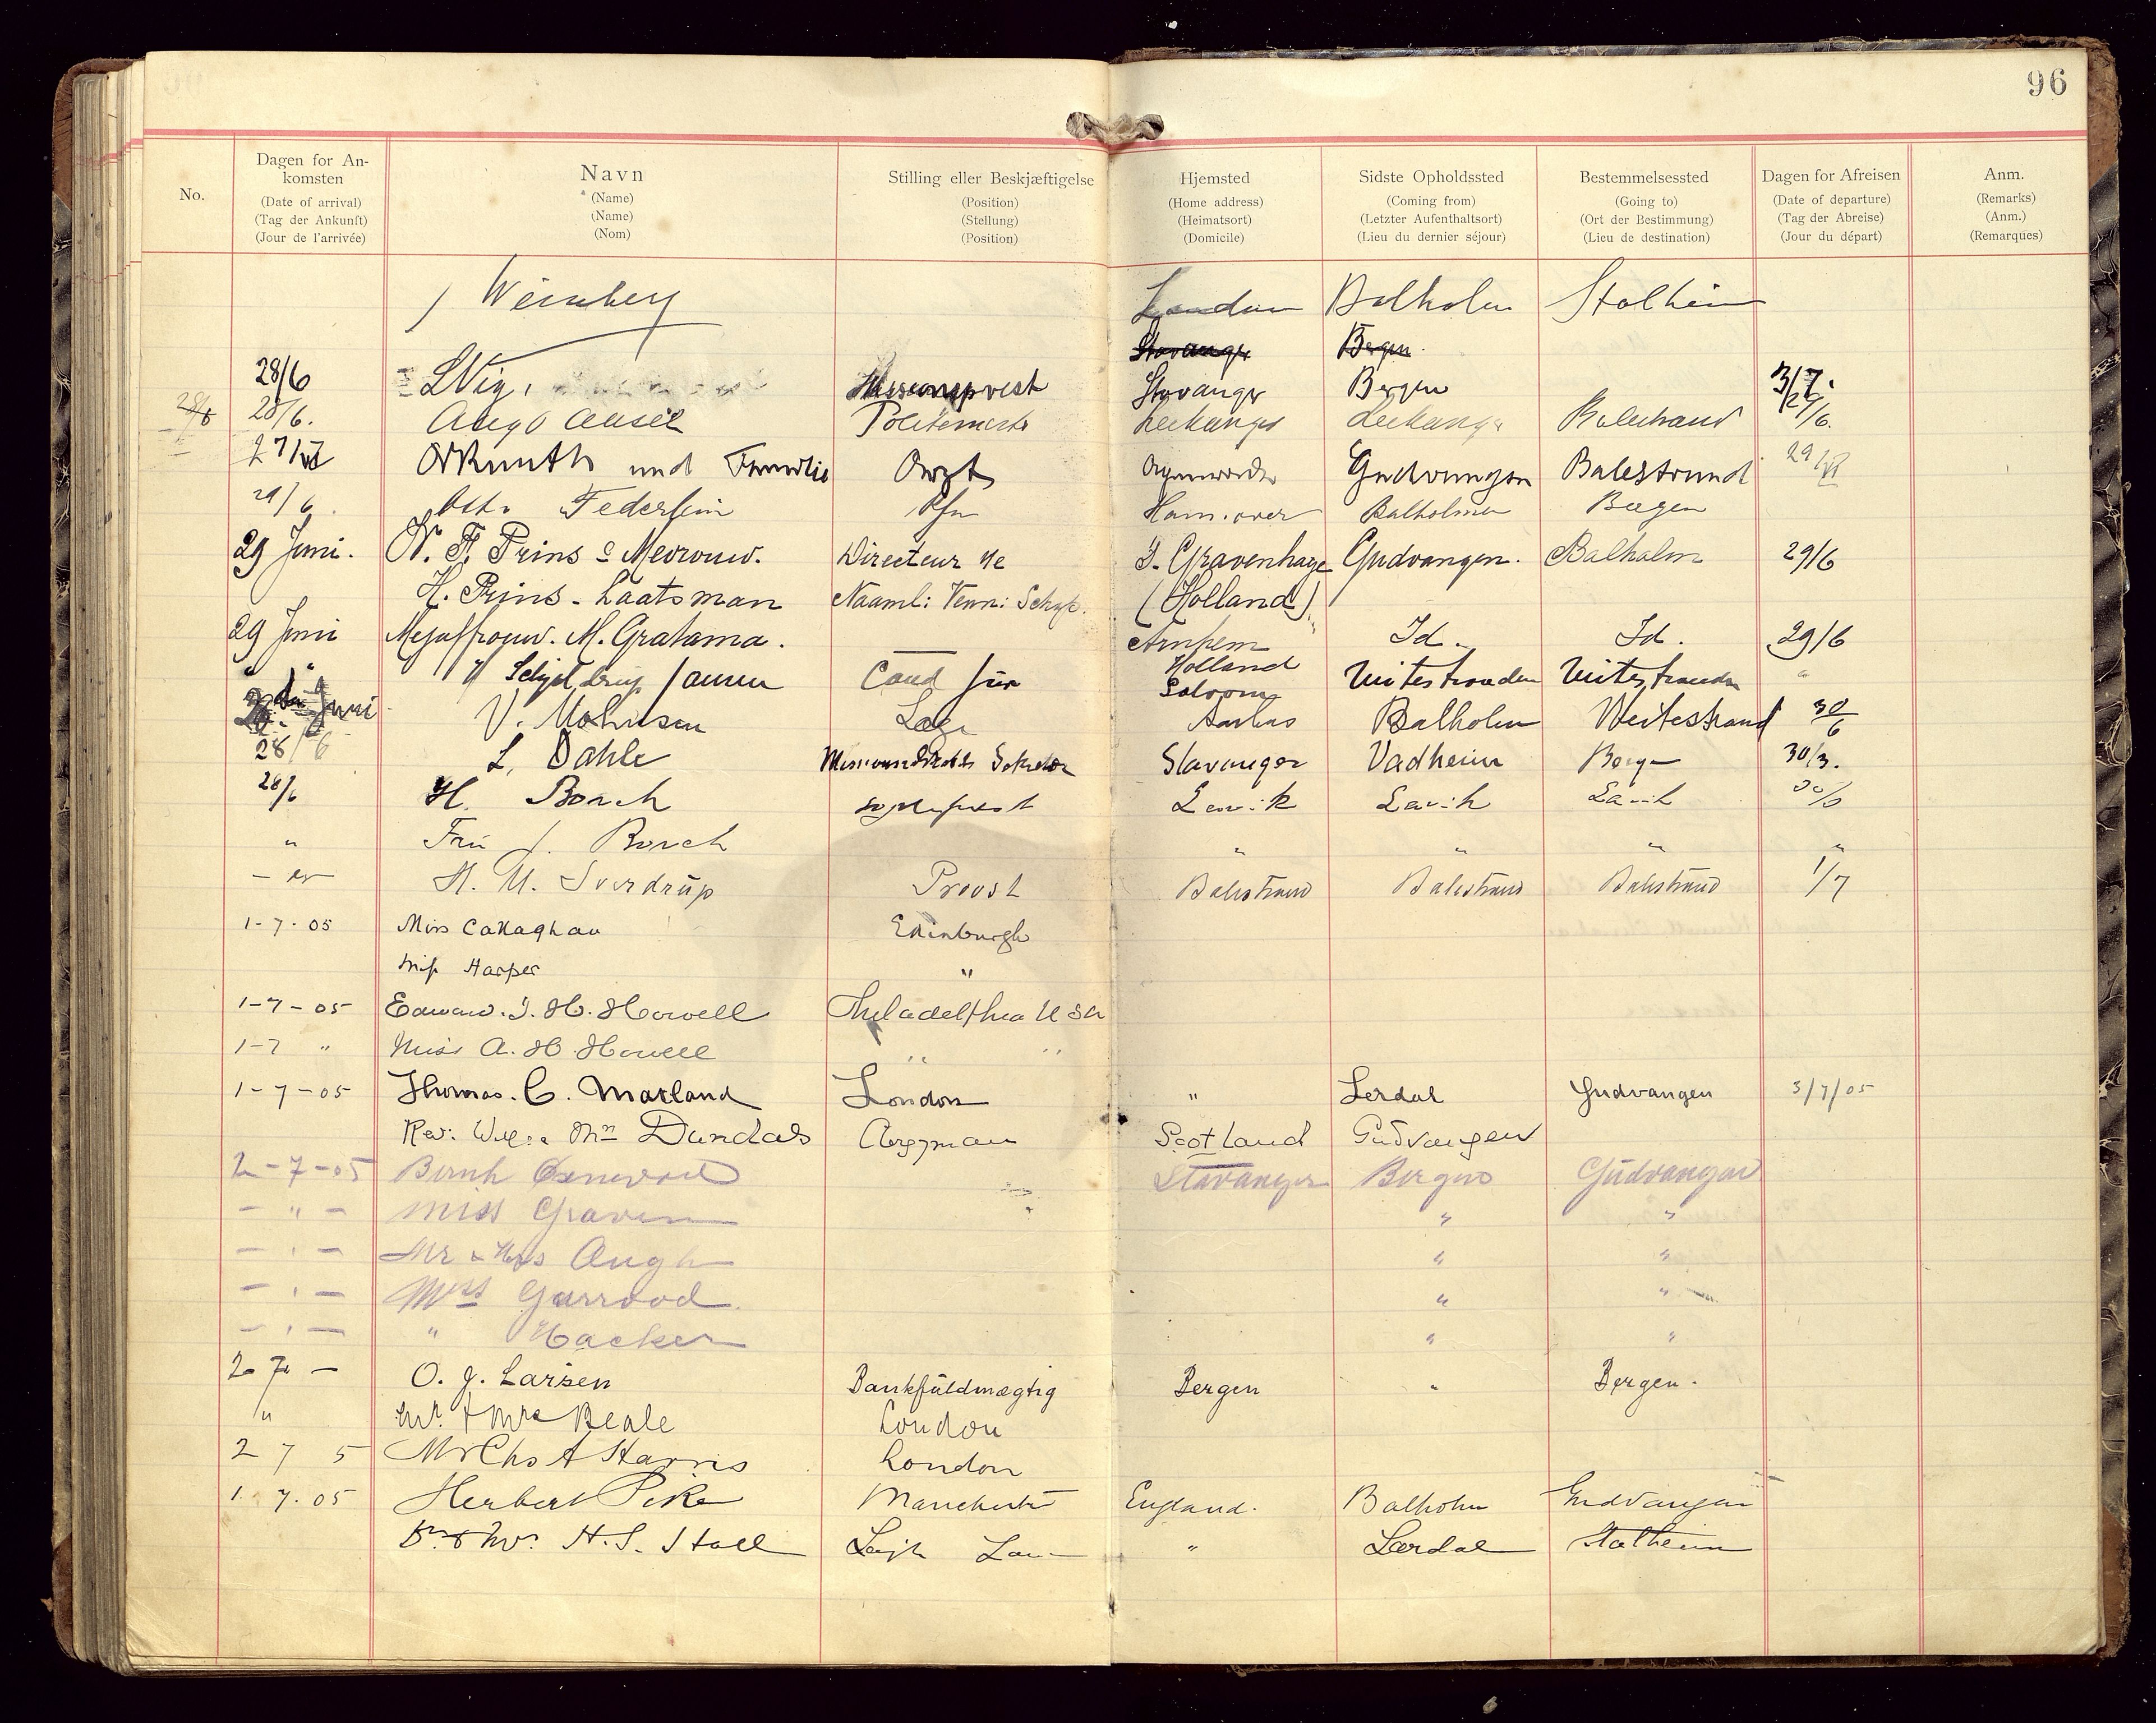 96
No. Dagen for Ankomsten Navn Stilling eller Beskjæftigelse Hjemsted Sidste Opholdssted Bestemmelsessted Dagen for Afreisen Anm.
(Date of arrival) (Name) (Position) (Home address) (Coming from) (Going to) (Date of departure) (Remarks)
(Tag der Ankunft) (Name) (Stellung) (Heimatsort) (Letzter Aufenthaltsort) (Ort der Bestimmung) (Tag der Abreise) (Anm.)
(Jour de l'arrivée) (Nom) (Position) (Domicile) (Lieu du dernier séjour) (Lieu de destination) (Jour du départ) (Remarques)
Weinberg London Balholm Stalheim
Stavanger Bergen
28/6 Missionsprest Stavanger Bergen 3/7.
28/6. Leikanger Leikanger Balestrand
27/VI und Familie Arzt Gudvangen Balestrand 29/VI
29/6 Hannover Balholmen Bergen
29 Juni. Prins & Mevrouw. Directeur de S. Gravenhage Gudvangen. Balholm 29/6
H. Prins - Laatsman Naaml: Venn: Schap. (Holland)
29 Juni Mejuffrouw. M. Gratama. Arnhem Id. Id. 29/6
" " Schjelderup Cand jur Holland Veitestranden Veitestranden "
Juni V. Læge Aarhus Balholm Veitestrand 30/6
28/6 L. Dahle Stavanger Vadheim Bergen 30/3.
28/6 H. Borch Sogneprest Lavik Lavik Lavik
" Fru J. Borch " " " "
H. U. Sverdrup Provst Balestrand Balestrand Balestrand 1/7
1-7-05 Miss Callaghan Edinburgh
Miss Harper "
1-7-05 Edward. I. H. Howell Philadelphia USA
1-7 " Miss A. H. Howell " "
1-7-05 Thomas. C. Marland London " Lerdal Gudvangen 3/7/05
Rev: Dundas Clergyman Scotland Gudvangen
2-7-05 Bernh Stavanger Bergen Gudvangen
- " - Miss Graven " "
- " - Mr & Mrs " "
- " - Miss Garrood " "
- " - " Hacker " "
2 7 - O. J. Larsen Bankfuldmægtig Bergen " Bergen.
" Mr. & Mrs Beale London
2 7 5 Mr Chs A Harris London
1 7.05 Herbert Pike Manchester England. Balholm Gudvangen
Dr. & Mrs. H. S. Stall Leigh " Lærdal Stalheim